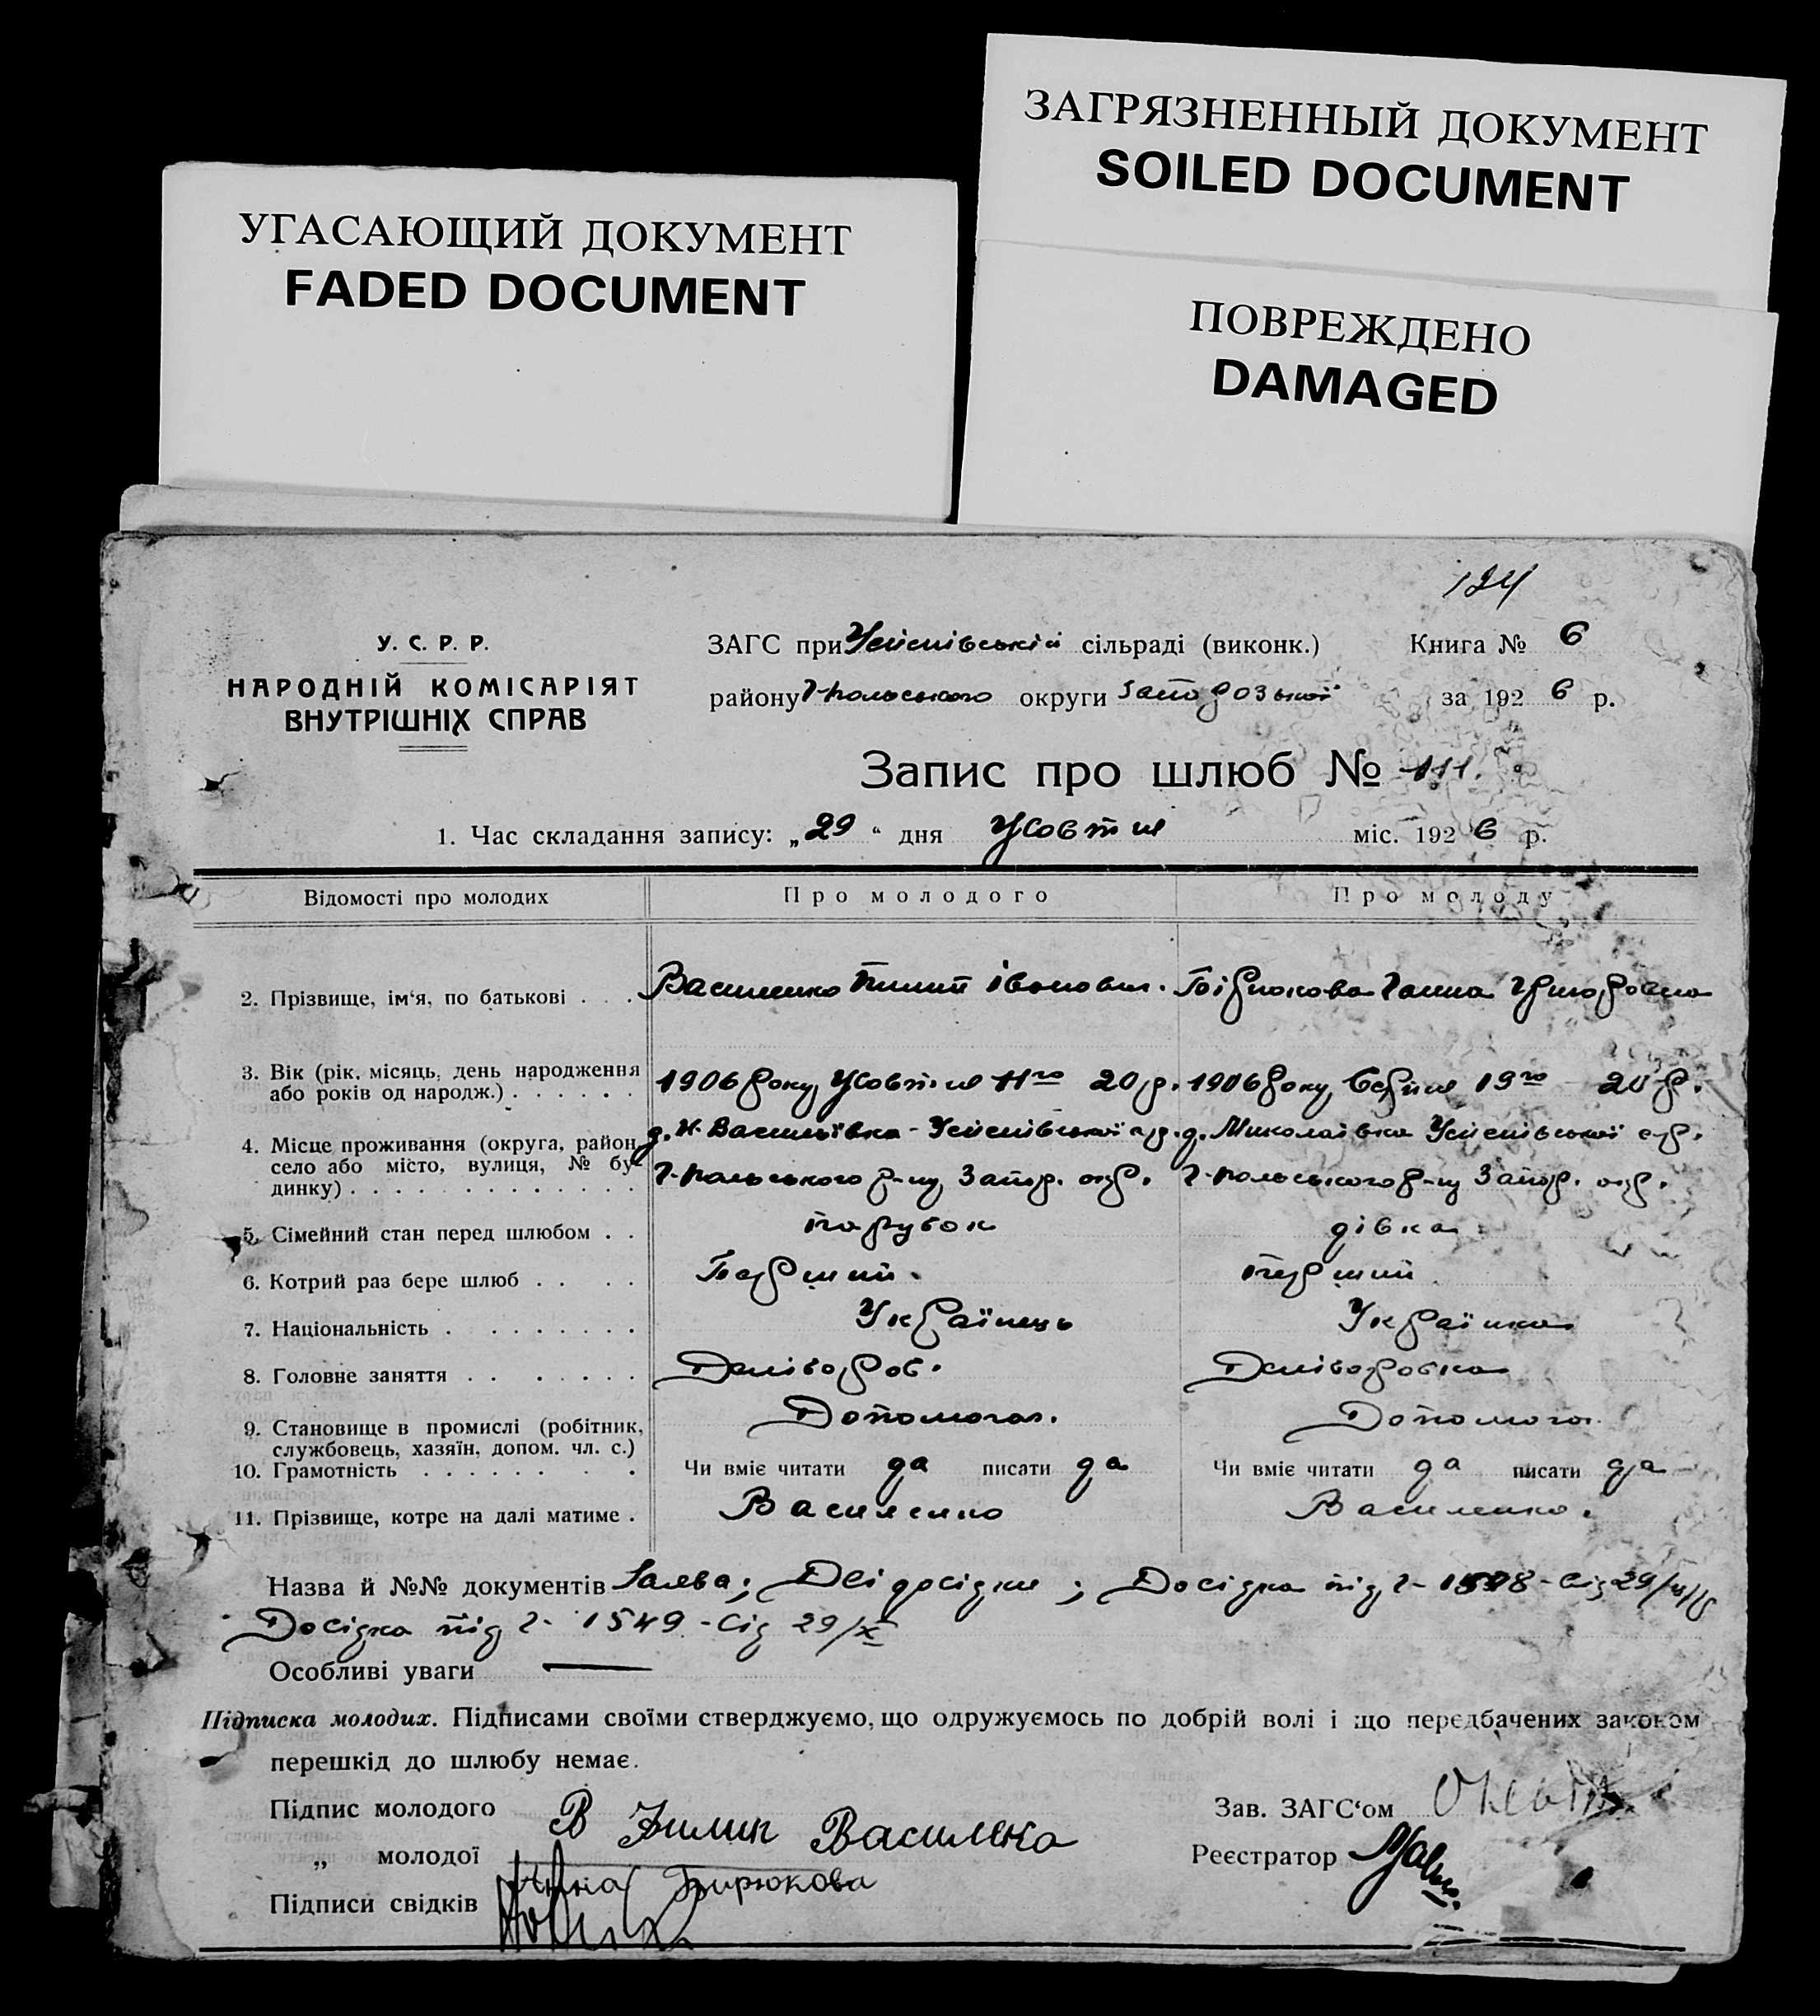 ЗАГРЯЗНЕННЫЙ ДОКУМЕНТ
SOILED DOCUMENT
УГАСАЮЩИЙ ДОКУМЕНТ
FADED DOCUMENT
ПОВРЕЖДЕНО
DAMAGED
124
У. С. Р. Р.
НАРОДНІЙ КОМІСАРІЯТ
ВНУТРІШНІХ СПРАВ
ЗАГС при Успенівській сільраді (виконк.) Книга № 6
району Г-польського округи Запорозької за 1926 р.
Запис про шлюб № 111.
1. Час складання запису: „29“ дня Жовтня міс. 1926 р.
Відомості про молодих Про молодого Про молоду
2. Прізвище, ім‘я, по батькові . . . Василенко Пилип Іванович. Бірюкова Ганна Григоровна
3. Вік (рік, місяць, день народження або років од народж.) . . . . . . 1906 року Жовтня 11го 20 р. 1906 року, Серпня 19го 20 р.
4. Місце проживання (округа, район, село або місто, вулиця, № будинку) . . . . . . . . . . . . д. Н. Василівка - Успенівської с/р. д. Миколаівка Успенівської с/р.
Г-польського р-ну Запор. окр. Г-польського р-ну Запор. окр.
5. Сімейний стан перед шлюбом . . парубок дівка
6. Котрий раз бере шлюб . . . . Перший. перший
7. Національність . . . . . . . . Українець Українка
8. Головне заняття . . . . . . . Хлібороб. Хліборобка
9. Становище в промислі (робітник, службовець, хазяїн, допом. чл. с.) Допомога. Допомога.
10. Грамотність . . . . . . . . Чи вміє читати да писати да Чи вміє читати да писати да
11. Прізвище, котре на далі матиме . Василенко Василенко.
Назва й №№ документів Заява; Дві досідки; Досідка під ч- від 29/X
Досідка під ч- 1549 - від 29/X
Особливі уваги —
Підписка молодих. Підписами своїми стверджуємо, що одружуємось по добрій волі і що передбачених законом
перешкід до шлюбу немає.
Підпис молодого В Филип Василенко
Зав. ЗАГС‘ом
„ молодої Анна Бирюкова
Реєстратор
Підписи свідків